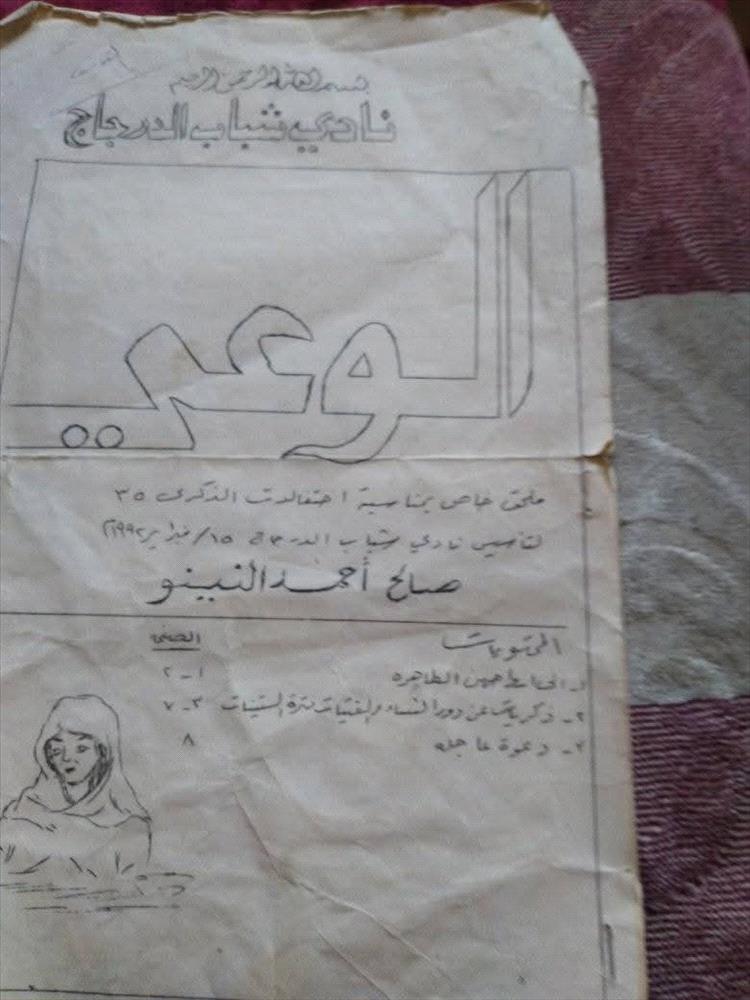 بسم الله الرحمن الرحيم
نادي شباب الدرجاج
الوعي
ملحق خاص بمناسبة احتفالات الذكرى ٣٥
لتأسيس نادي شباب الدرجاج ١٥/فبراير ١٩٩٢
صالح أحمد النينو
المحتويات الصفحة
١- الى ١-٢
٢- ذكريات عن دور النساء والفتيات فترة الستينات ٣-٧
٣- دعوة عاجله ٨